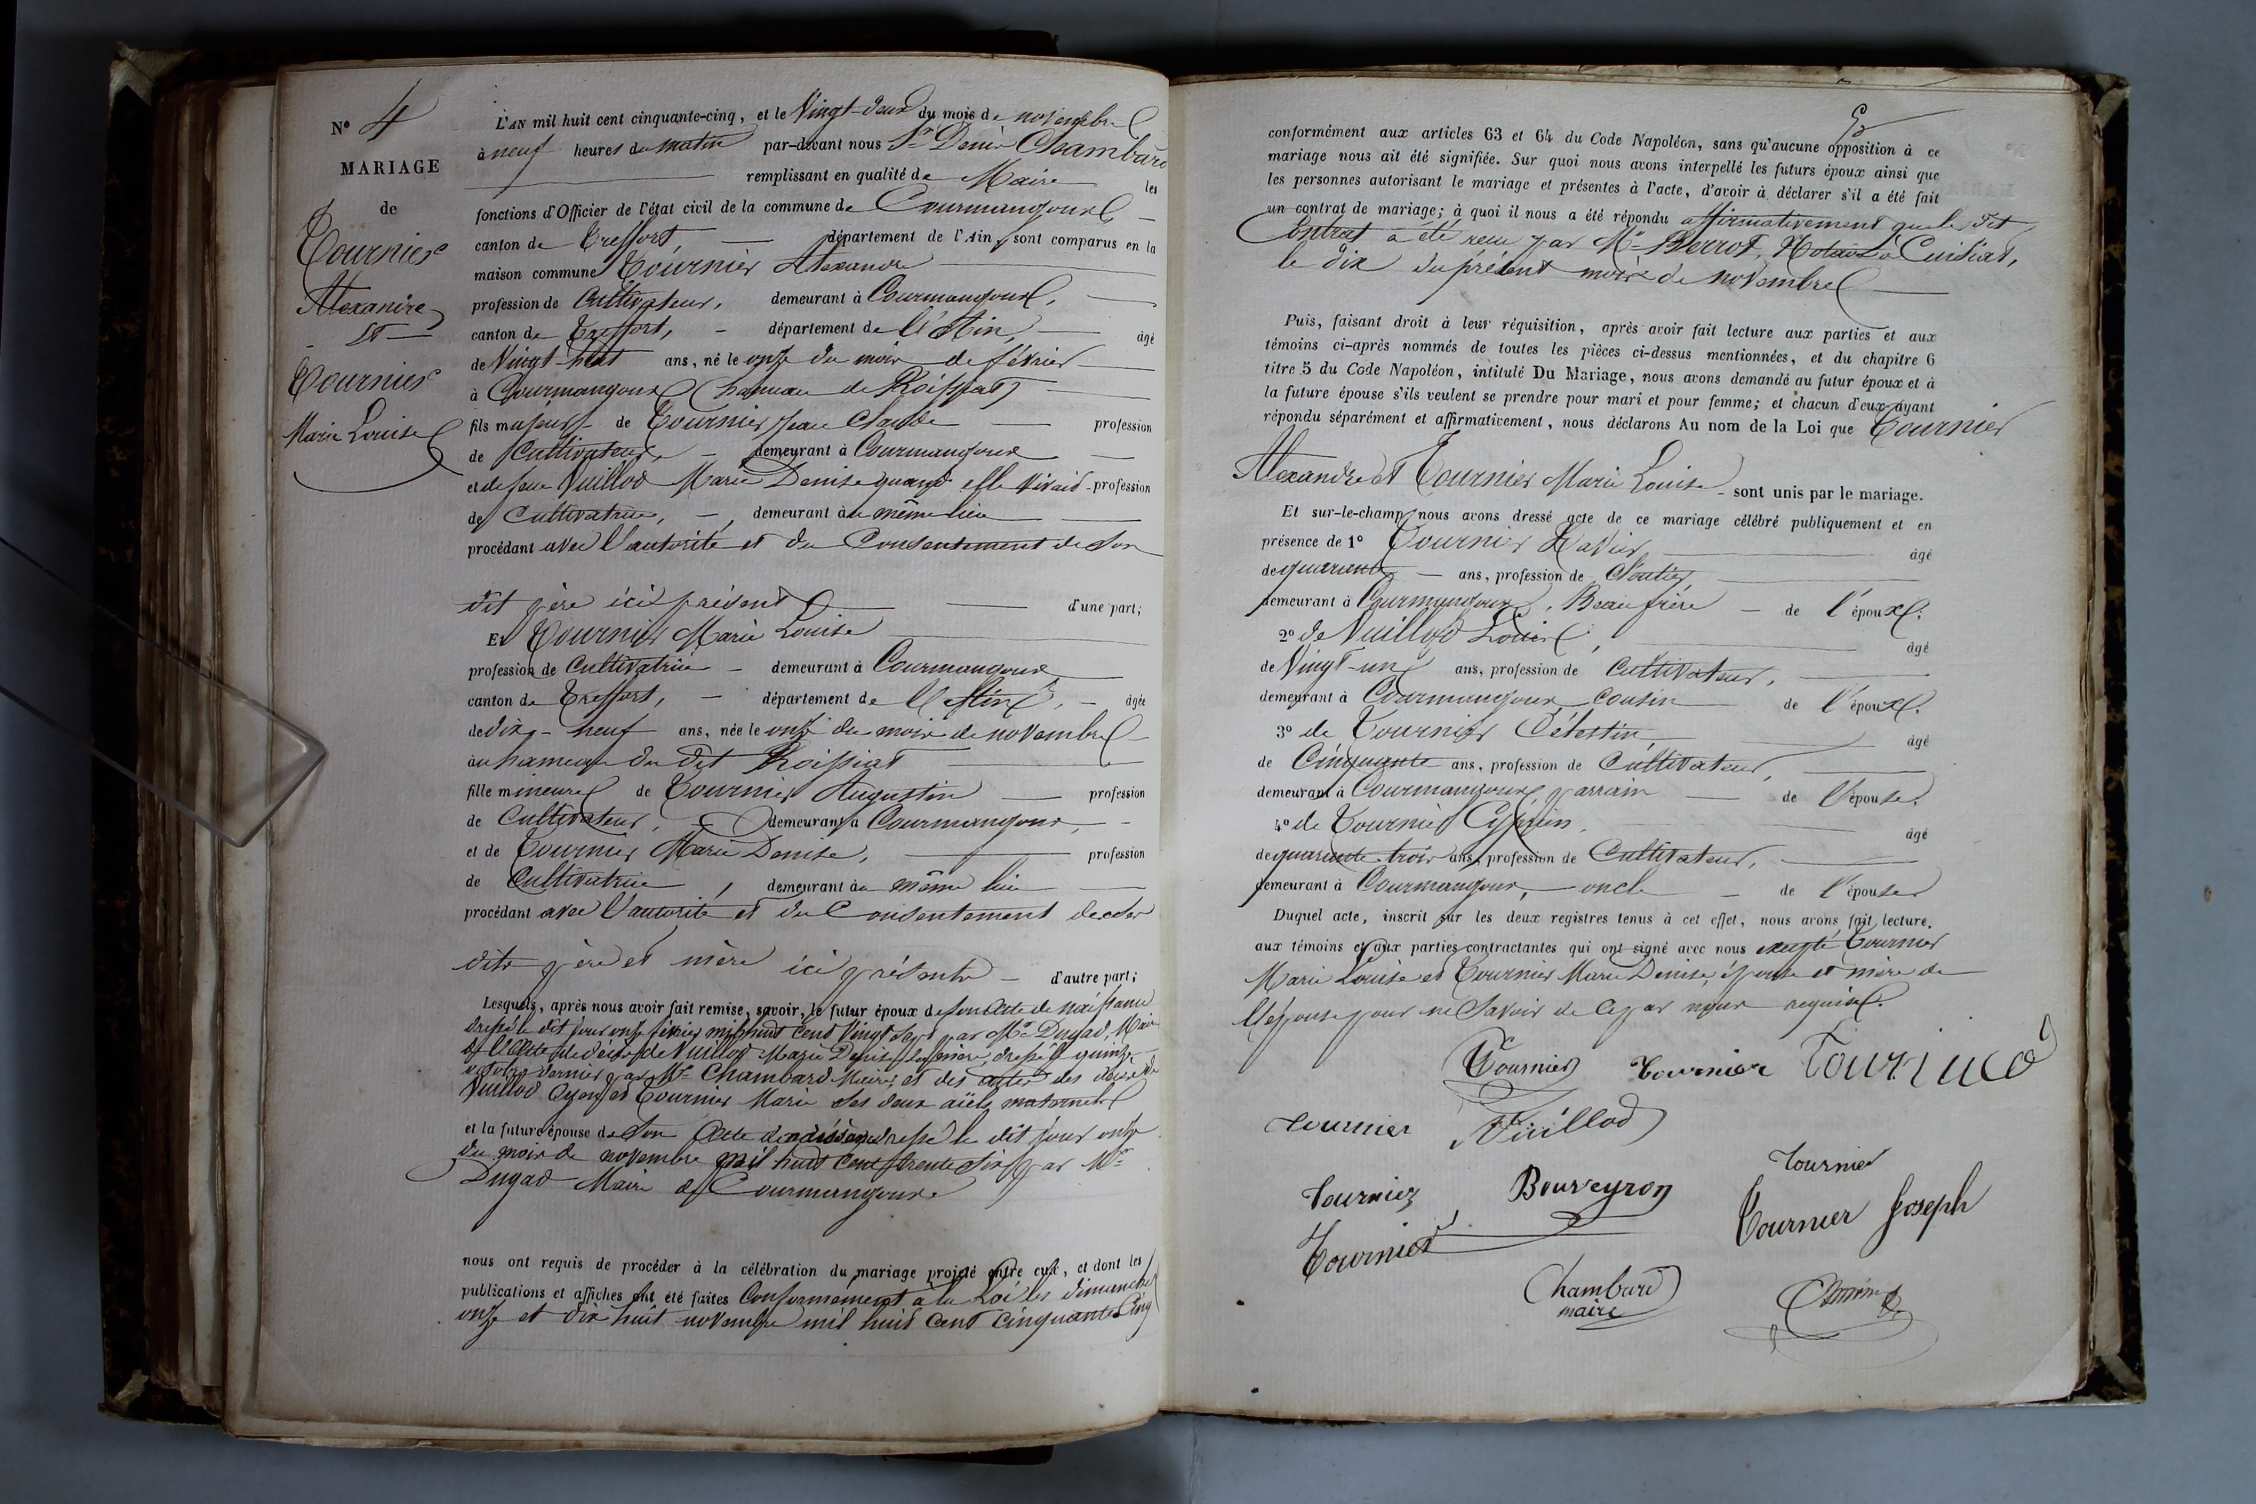 N° 4
MARIAGE
de
Tournier
Alexandre
Et
Tournier
Marie Louise
L'AN mil huit cent cinquante-cinq, et le Vingt-deux du mois de novembre
à neuf heures du matin par-devant nous Sr Denis Chambard
remplissant en qualité de Maire les
fonctions d'Officier de l'état civil de la commune de Courmangoux
canton de Treffort, département de l'Ain, sont comparus en la
maison commune Tournier Alexandre
profession de Cultivateur, demeurant à Courmangoux,
canton de Treffort, département de l'Ain, âgé
de Vingt-huit ans, né le onze du mois de février
à Courmangoux (hameau de Roissiat)
fils majeur de Tournier Jean Claude profession
de Cultivateur, demeurant à Courmangoux
et de feue Vuillod Marie Denise quand elle vivait profession
de Cultivatrice, demeurant au même lieu
procédant avec l'autorité et du Consentement de son
dit père ici présent d'une part;
Et Tournier Marie Louise
profession de Cultivatrice demeurant à Courmangoux
canton de Treffort, département de l'Ain, âgée
de dix-neuf ans, née le onze du mois de novembre
au hameau du dit Roissiat
fille mineure de Tournier Augustin profession
de Cultivateur, demeurant à Courmangoux,
et de Tournier Marie Denise, profession
de Cultivatrice, demeurant au même lieu
procédant avec l'autorité et du Consentement de ses
dits père et mère ici présents d'autre part;
Lesquels, après nous avoir fait remise, savoir, le futur époux de son acte de naissance
dressé le dit jour onze février mil huit cent vingt sept par Mr Dugad, Maire
et l'acte de décès de Vuillod Marie Denise sa mère, dressé le quinze
octobre dernier par Mr Chambard Maire, et des actes des décès de
Vuillod et Tournier Marie ses deux aïeuls maternels
et la future épouse de son Acte de naissance dressé le dit jour onze
du mois de novembre mil huit cent trente six par Mr
Dugad Maire de Courmangoux
nous ont requis de procéder à la célébration du mariage projeté entre eux, et dont les
publications et affiches ont été faites Conformément à la Loi les dimanches
onze et dix huit novembre mil huit cent cinquante cinq
conformément aux articles 63 et 64 du Code Napoléon, sans qu'aucune opposition à ce
mariage nous ait été signifiée. Sur quoi nous avons interpellé les futurs époux ainsi que
les personnes autorisant le mariage et présentes à l'acte, d'avoir à déclarer s'il a été fait
un contrat de mariage; à quoi il nous a été répondu affirmativement que le dit
Contrat a été reçu par Me Perrot, Notaire à Cuisiat,
le dix du présent mois de novembre
Puis, faisant droit à leur réquisition, après avoir fait lecture aux parties et aux
témoins ci-après nommés de toutes les pièces ci-dessus mentionnées, et du chapitre 6
titre 5 du Code Napoléon, intitulé Du Mariage, nous avons demandé au futur époux et à
la future épouse s'ils veulent se prendre pour mari et pour femme; et chacun d'eux ayant
répondu séparément et affirmativement, nous déclarons Au nom de la Loi que Tournier
Alexandre et Tournier Marie Louise sont unis par le mariage.
Et sur-le-champ nous avons dressé acte de ce mariage célébré publiquement et en
présence de 1° Tournier Xavier âgé
de quarante ans, profession de
demeurant à Courmangoux, Beau frère de l'époux.
2° de Vuillod Louis, âgé
de Vingt-un ans, profession de Cultivateur,
demeurant à Courmangoux cousin de l'époux.
3° de Tournier Célestin, âgé
de Cinquante ans, profession de Cultivateur,
demeurant à Courmangoux, parrain de l'épouse.
4° de Tournier Cyprien, âgé
de quarante-trois ans, profession de Cultivateur,
demeurant à Courmangoux, oncle de l'épouse
Duquel acte, inscrit sur les deux registres tenus à cet effet, nous avons fait lecture.
aux témoins et aux parties contractantes qui ont signé avec nous excepté Tournier
Marie Louise et Tournier Marie Denise, épouse et mère de
l'épouse pour ne savoir de ce par nous requises.
Tournier Tournier Tournier
Tournier Vuillod
Tournier
Tournier Bouveyron
Tournier Joseph
Tournier
Chambard
maire